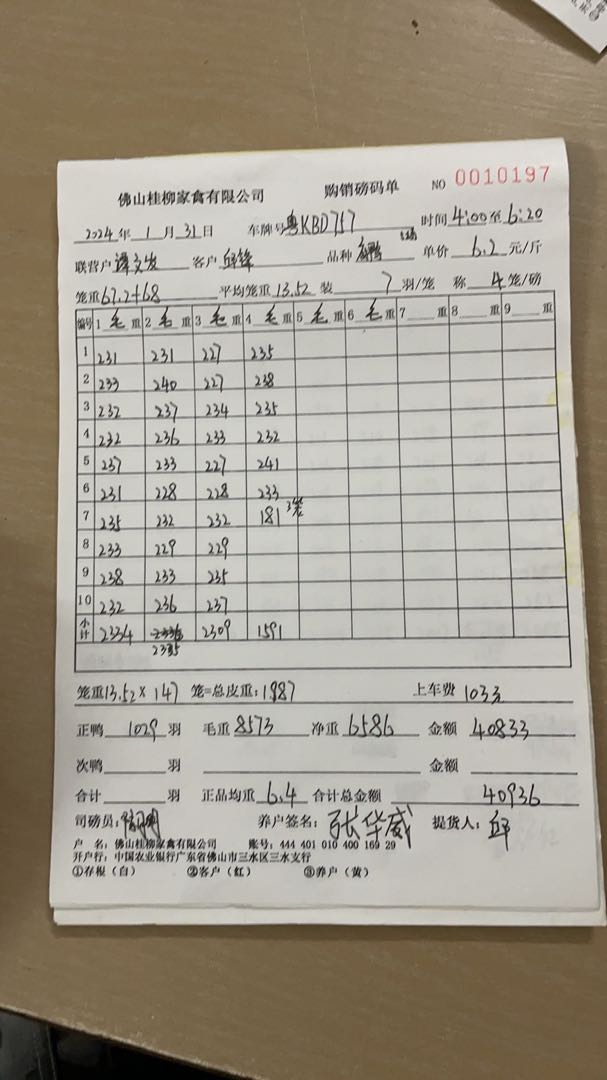 佛山桂柳家禽有限公司 购销磅码单 NO 0010197
2024年 1 月 31 日 车牌号 粤KBD757 时间 4:00 至 6:20
联营户 谭文发 客户 品种 单价 6.2 元/斤
笼重 67.2+68 平均笼重 13.52 装 7 羽/笼 称 4 笼/磅
编号 1 毛 重 2 毛 重 3 毛 重 4 毛 重 5 毛 重 6 毛 重 7 重 8 重 9 重
1 231 231 227 235
2 233 240 227 238
3 232 237 234 235
4 232 236 233 232
5 237 233 227 241
6 231 228 228 233
7 235 232 232 181 3笼
8 233 229 229
9 238 233 235
10 232 236 237
小计 2334 2336 2309 1591
2335
笼重 13.52 × 147 笼=总皮重: 1987 上车费 103元
正鸭 1029 羽 毛重 8573 净重 6586 金额 40833
次鸭 羽 金额
合计 羽 正品均重 6.4 合计总金额 40936
司磅员: 养户签名: 张华威 提货人: 邱
户 名: 佛山桂柳家禽有限公司 账号: 444 401 010 400 169 29
开户行: 中国农业银行广东省佛山市三水区三水支行
①存根（白） ②客户（红） ③养户（黄）